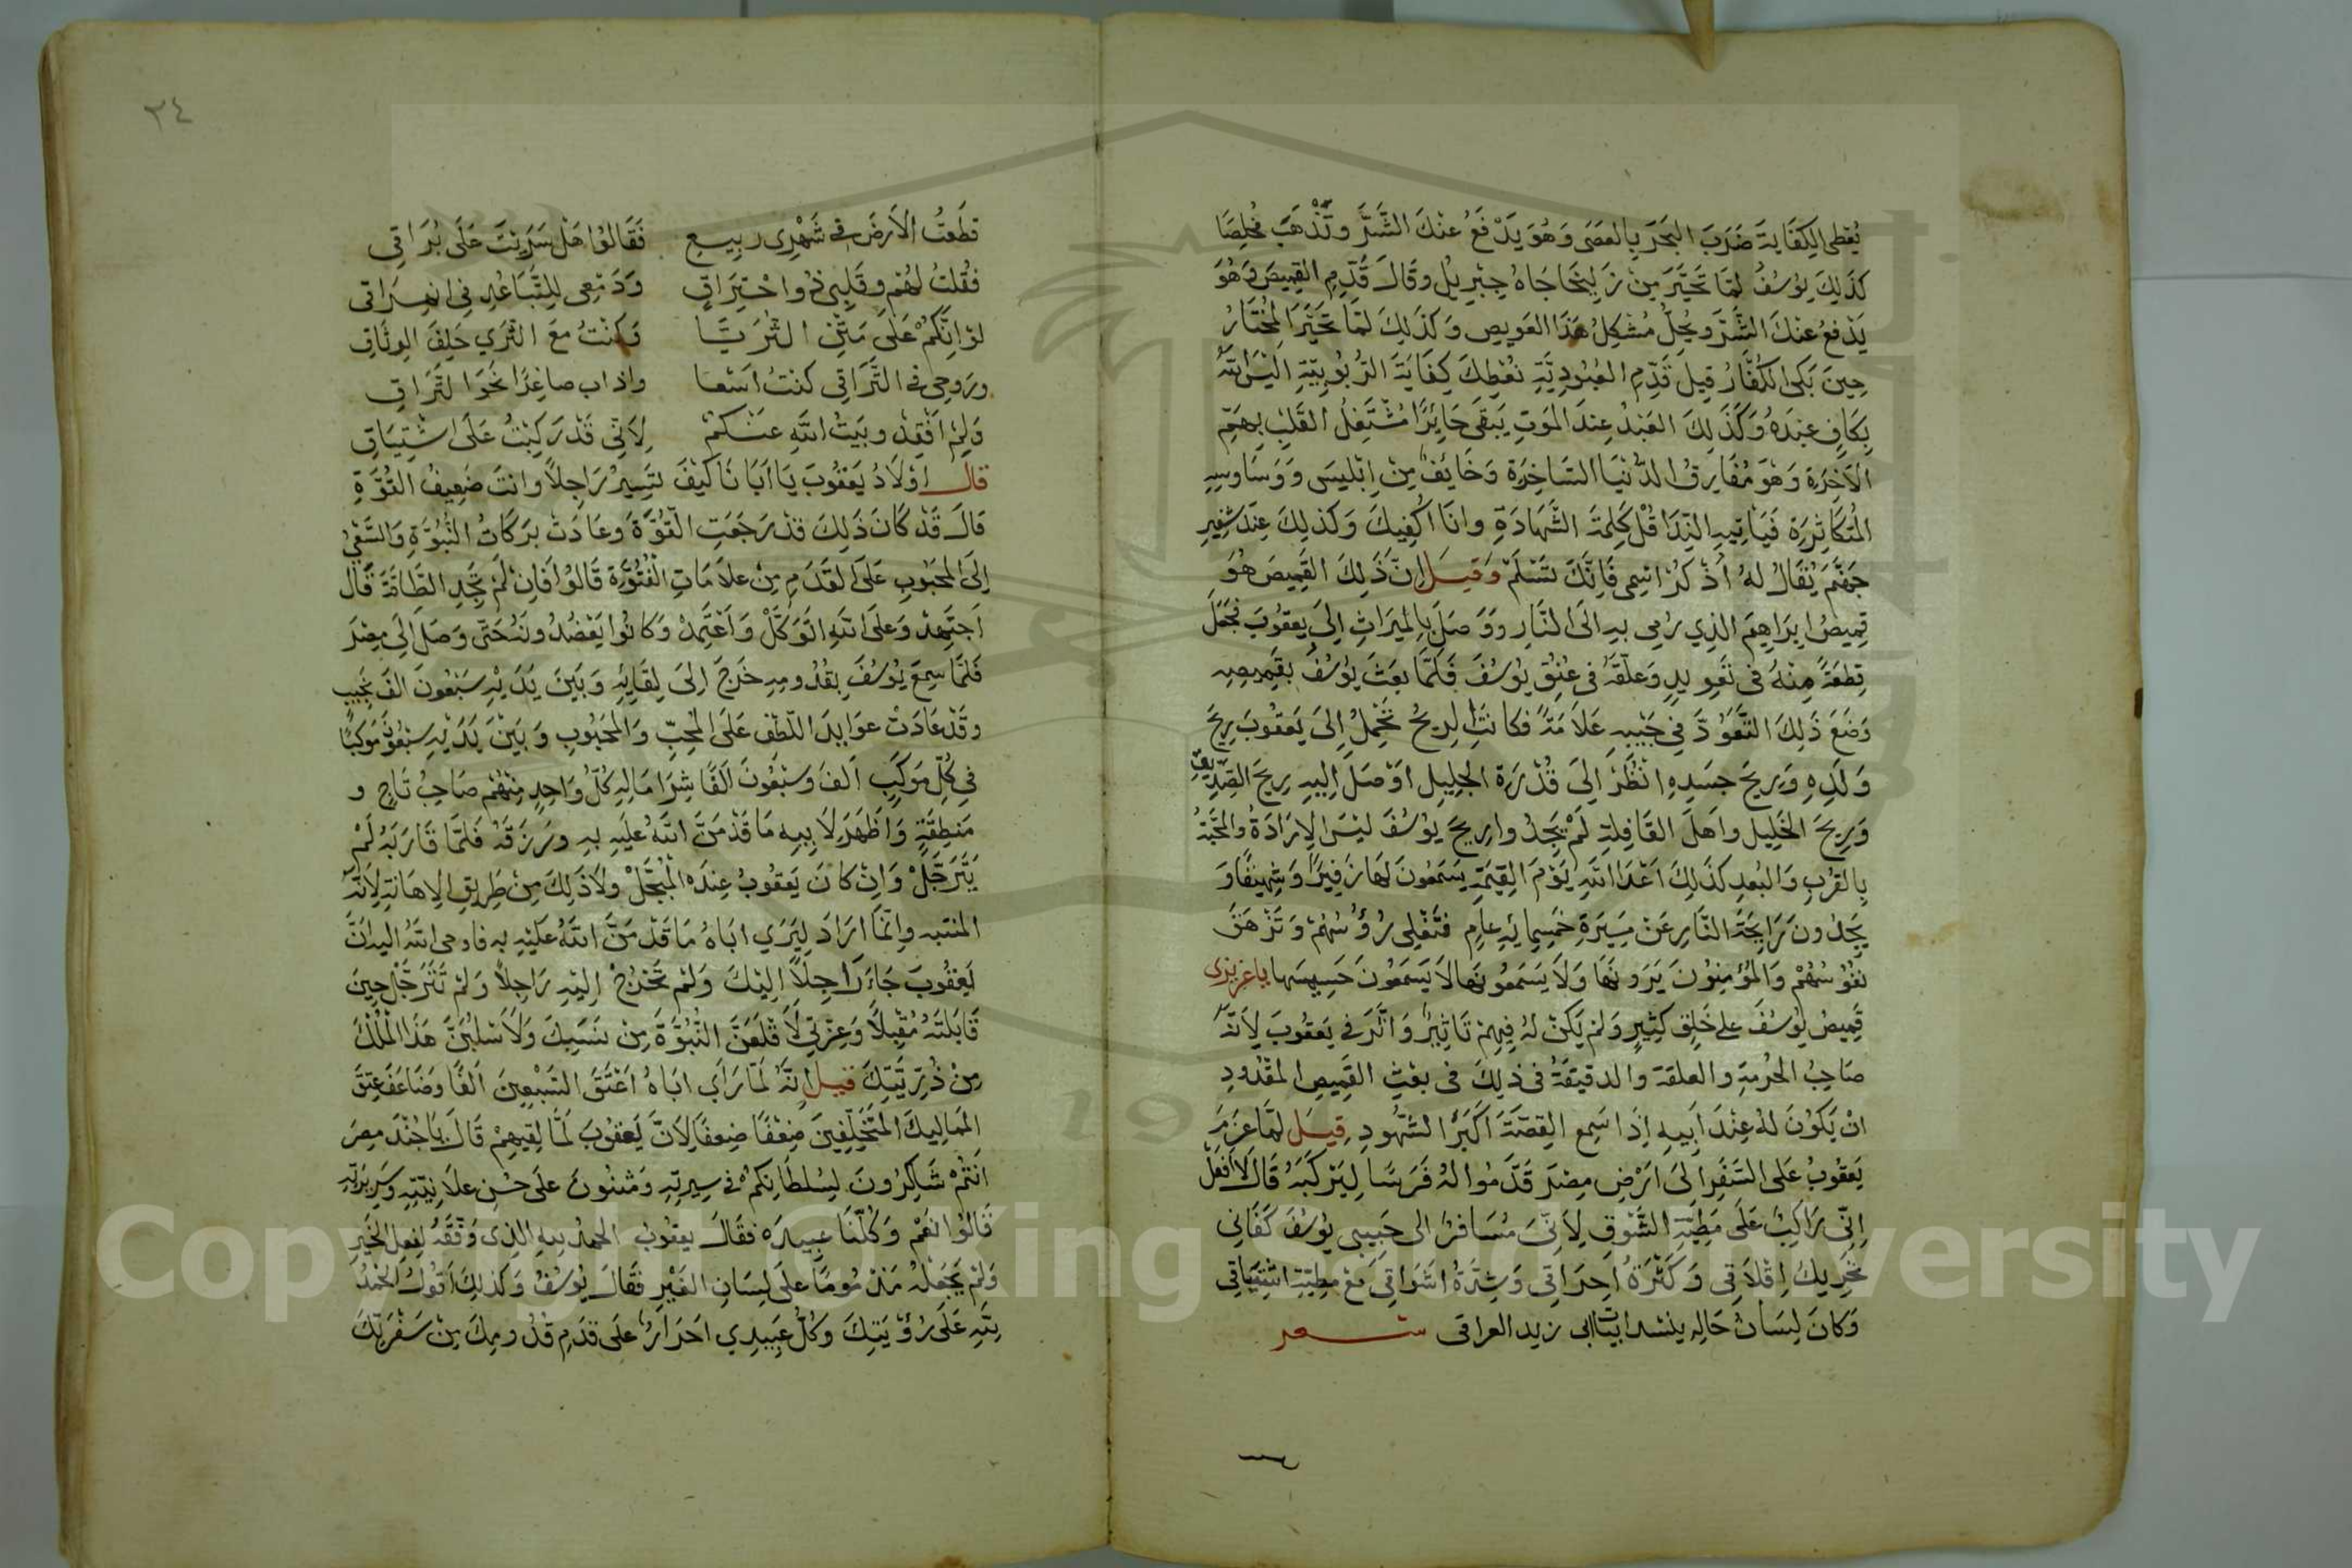 نُعْطِي الكِفَايَةَ ضَرَبَ البَحْرَ بِالعَصَى وَهُوَ يَدْفَعُ عَنْكَ الشَّرَّ وَتَذْهَبَ مُخْلِصًا
كَذَلِكَ يُوسُفُ لَمَّا تَحَيَّرَ مِنْ زَلِيخَا جَاهُ جِبْرِيلُ وَقَالَ قَدِّمِ القَمِيصَ وَهُوَ
يَدْفَعُ عَنْكَ الشَّرَّ وَيُحِلُّ مُشْكِلُ هَذَا العَوِيصِ وَكَذَلِكَ لَمَّا تَحَيَّرَ المُخْتَارُ
حِينَ بَكَى الكُفَّارُ قِيلَ قَدِّمِ العُبُودِيَّةِ نُعْطِكَ كِفَايَةَ الرُّبُوبِيَّةِ الَيْسَ اللَّهُ
بِكَافٍ عَبْدَهُ وَكَذَلِكَ العَبْدُ عِنْدَ المَوْتِ يَبْقَى حَائِرًا مُشْتَغِلُ القَلْبِ بِهَمِّ
الآخِرَةِ وَهُوَ مُفَارِقُ الدُّنْيَا السَّاخِرَةِ وَخَائِفٌ مِنْ اِبْلِيسَ وَوَسَاوِسِهِ
المُتَكَاثِرَةِ فَيَاتِيهِ النِّدَا قُلْ كَلِمَةَ الشَّهَادَةِ وَانَا اكْفِيكَ وَكَذَلِكَ عِنْدَ شَفِيرِ
جَهَنَّمَ يُقَالُ لَهُ اُذْكُرْ اسْمِي فَإِنَّكَ تَسْلَمْ وَقِيلَ إِنَّ ذَلِكَ القَمِيصَ هُوَ
قَمِيصُ ابْرَاهِيمَ الذِي رُمِي بِهِ الَى النَّارِ وَوَصَلَ بِالمِيرَاثِ الَى يَعْقُوبَ فَجَعَلَ
قِطْعَةً مِنْهُ فِي تَعْوِيذٍ وَعَلَّقَهُ فِي عُنُقِ يُوسُفَ فَلَمَّا بَعَثَ يُوسُفُ بِقَمِيصِهِ
وَضَعَ ذَلِكَ التَّعَوُّذَ فِي جَيْبِهِ عَلاَمَةً فَكَانَتِ الرِيحُ تَحْمِلُ اِلَى يَعْقُوبَ رِيحَ
وَلَدِهِ وَرِيحَ جَسَدِهِ انْظُرْ اِلَى قُدْرَةِ الجَلِيلِ اَوْصَلَ اِلَيهِ رِيحَ الصِّدِّيقِ
وَرِيحَ الخَلِيلِ وَاهَلَ القَافِلَةِ لَمْ يَجِدُوا رِيحَ يُوسُفَ لَيْسَ الاِرَادَةُ وَالمَحَبَّةُ
بِالقُرْبِ وَالبُعْدِ كَذَلِكَ اَعْدَا اللَّهِ يَوْمَ القِيمَةِ يَسْمَعُونَ لَهَا زَفِيرًا وَشَهِيقًا وَ
يَجِدُونَ رَايِحَةَ النَّارِ عَنْ مَسِيرَةِ خَمْسِمِائَةِ عَامٍ فَتَغْلِي رُؤُسُهُمْ وَتَزْهَقُ
نُفُوسُهُمْ وَالمُؤْمِنُونَ يَرَوْنَهَا وَلاَ يَسْمَعُونَهَا لاَ يَسْمَعُونَ حَسِيسَهَا يا عزيزي
قَمِيصُ يُوسُفَ عَلَى خَلْقٍ كَثِيرٍ وَلَمْ يَكُنْ لَهُ فِيهِمْ تَاثِيرٌ وَاثَّرَ فِي يَعْقُوبَ لِاَنَّهُ
صَاحِبُ الحُرْمَةِ وَالعَلَقَةِ وَالدَقِيقَةُ فِي ذَلِكَ فِي بَعْثِ القَمِيصِ المَقْدُودِ
انْ يَكُونَ لَهُ عِنْدَ اَبِيهِ اِذَا سَمِعَ القِصَّةَ اَكْبَرُ الشُّهُودِ قِيلَ لَمَّا عَزَمَ
يَعْقُوبُ عَلَى السَّفَرِ الَى اَرْضِ مِصْرَ قَدَّمُوا لَهُ فَرَسًا لِيَرْكَبَهُ قَالَ لاَ اَفْعَلُ
اِنِّي رَاكِبٌ عَلَى مَطِيَّةِ الشَّوْقِ لِاَنِّي مُسَافِرٌ الى حَبِيبِي يُوسُفَ كَفَانِي
تَحْرِيكُ اِقْلاَقِي وَكَثْرَةُ احْرَاقِي وَشِدَّةُ اشْوَاقِي مَعَ مَطِيَّةِ اشْتِيَاقِي
وَكَانَ لِسَانُ حَالِهِ ينشد ابيات ابي زيد العراقي شعر
قَطَعْتُ الاَرضَ في شَهْرِي رَبِيعٍ فَقَالُوا هَلْ سَرَيْتَ عَلَى بُرَاقِي
فَقُلْتُ لَهُمْ وَقَلْبِي ذُو احْتِرَاقٍ وَدَمْعِي لِلتَّبَاعُدِ فِي انْهِرَاقِي
لَوْ انَّكُمْ عَلَى مَتْنِ الثُّرَيَّا وَكُنْتُ مَعَ الثَّرَي حِلْفَ الوِثَاقِ
وَرُوحِي فِي التَّرَاقِي كُنْتُ اسْعا واذاب صاغرًا نَحْوَ التَّرَاقِ
وَلَمْ افْقِدْ وَبَيْتُ اللَّهِ عَنْكُمْ لِاَنِّي قَدْ رَكِبْتُ عَلَى اشْتِيَاقِ
قال اوْلاَدُ يَعْقُوبَ يَا اَبَانَا كَيْفَ تَسِيرُ رَاجِلاً وَانتَ ضَعِيفُ القُوَّةِ
قَالَ قَدْ كَانَ ذَلِكَ قَدْ رَجَعَتِ القُوَّةَ وَعَادَتْ بَرَكَاتُ النُّبُوَّةِ وَالسَّعْيُ
اِلَى المَحْبُوبِ عَلَى القَدَمِ مِنْ عَلاَمَاتِ الفُتُوَّةِ قَالُوا فَاِنْ لَمْ تَجِدِ الطَّاقَةَ قَالَ
اَجْتَهِدُ وَعَلَى اللَّهِ اتَوَكَّلْ وَاَعْتَمِدُ وَكَانُوا يَعْضُدُونَهُ حَتَّى وَصَلَ اِلَى مِصْرَ
فَلَمَّا سَمِعَ يُوسُفَ بِقُدُومِهِ خَرَجَ اِلَى لِقَائِهِ وَبَيْنَ يَدَيْهِ سَبْعُونَ الفَ نَجِيبٍ
وَقَدْ عَادَتْ عَوَايِدَ اللُّطْفِ عَلَى المُحِبِّ وَالمَحْبُوبِ وَبَيْنَ يَدَيْهِ سَبْعُونَ مَوْكِبًا
فِي كُلِّ مَوْكِبٍ اَلفَ وَسَبْعُونَ اَلْفًا شِرَامَالِهِ كُلُّ وَاحِدٍ مِنْهُمْ صَاحِبُ تَاجٍ وَ
مَنْطِقَةٍ وَاَظْهَرَ لاَبِيهِ مَا قَدْ مَنَّ اللَّهُ عَلَيهِ بِهِ وَرَزَقَهُ فَلَمَّا قَارَبَهُ لَمْ
يَتَرَجَّلْ وَاِنْ كَانَ يَعْقُوبُ عِنْدَهُ المُبَجَّلْ وَلاَ ذَلِكَ مِنْ طَرِيقِ الاِهَانَةِ لِاَنَّهُ
المنتبه وَاِنَّمَا ارَادَ لِيَرَي ابَاهُ مَا قَدْ مَنَّ اللَّهُ عَلَيْهِ بِهِ فاوحى اللَّهُ اليه انَّ
يَعْقُوبَ جَاءَ رَاجِلاً اِلَيْكَ وَلَمْ تَخْرُجْ اِلَيْهِ رَاجِلاً وَلَمْ تَتَرَجَّلْ حِينَ
قَابَلْتَهُ مُقْبِلاً وَعِزَّتِي لاَقْلَعَنَّ النُّبُوَّةَ مِنْ نَسَبِكَ وَلاَسْلُبَنَّ هَذَا المُلْكَ
مِنْ ذُرِّيَّتِكَ قيل اِنَّهُ لَمَّا رَاَي ابَاهُ اعْتَقَ السَّبْعِينَ اَلْفًا وَضَاعَفَ عِتْقَ
المَمَالِيكَ المُتَخَلِّفِينَ ضِعْفًا ضِعفًا لِاَنَّ يَعْقُوبَ لَمَّا لَقِيَهِمْ قَالَ يَا جُنْدَ مِصْرَ
اَنْتُمْ شَاكِرُونَ لِسُلْطَانِكُمْ فِي سِيرَتِهِ وَمُثْنُونَ عَلَى حُسْنِ عَلاَنِيَتِهِ وَسَرِيرَتِهِ
قَالُوا نَعَمْ وَكُلُّنَا عَبِيدَه فَقَالَ يَعْقُوبُ الحمد للهِ الذِي وَفَّقَهُ لِفِعْلِ الخَيْرِ
وَلَمْ يَجْعَلْهُ مَذْمُومًا عَلَى لِسَانِ الغَيْرِ فَقَالَ يُوسُفُ وَكَذَلِكَ اَقُولُ الحَمْدُ
لِلَّهِ عَلَى رُؤْيَتِكَ وَكُلُّ عَبِيدِي احْرَارٌ عَلَى قَدَمِ قُدُومِكَ مِنْ سَفْرَتِكَ
٣٤
Copyright © King Saud University